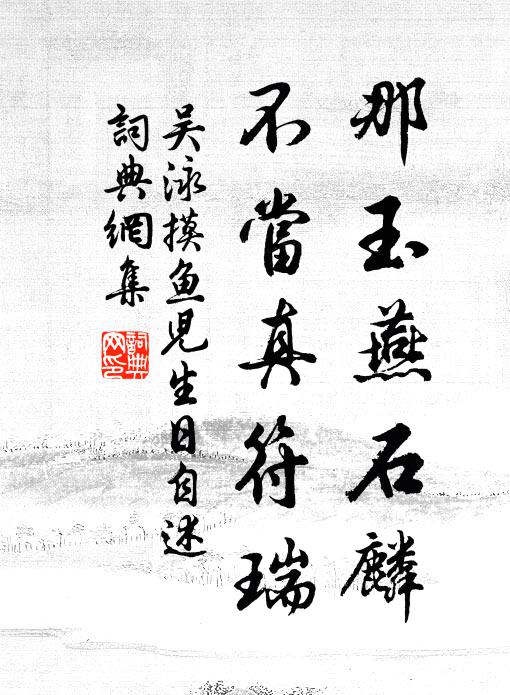 那玉燕石麟
不當真符瑞
吴泳摸鱼児生日自述
詞典網集
詞典
网印